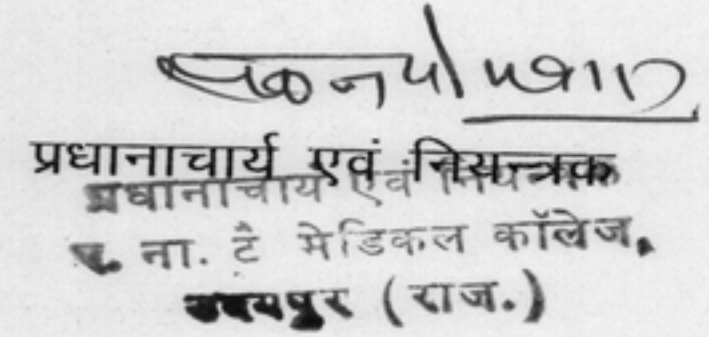 प्रधानाचार्य एवं नियन्त्रक
प्रधानाचार्य एवं नियन्त्रक
र. ना. टै मेडिकल कॉलेज,
उदयपुर (राज.)